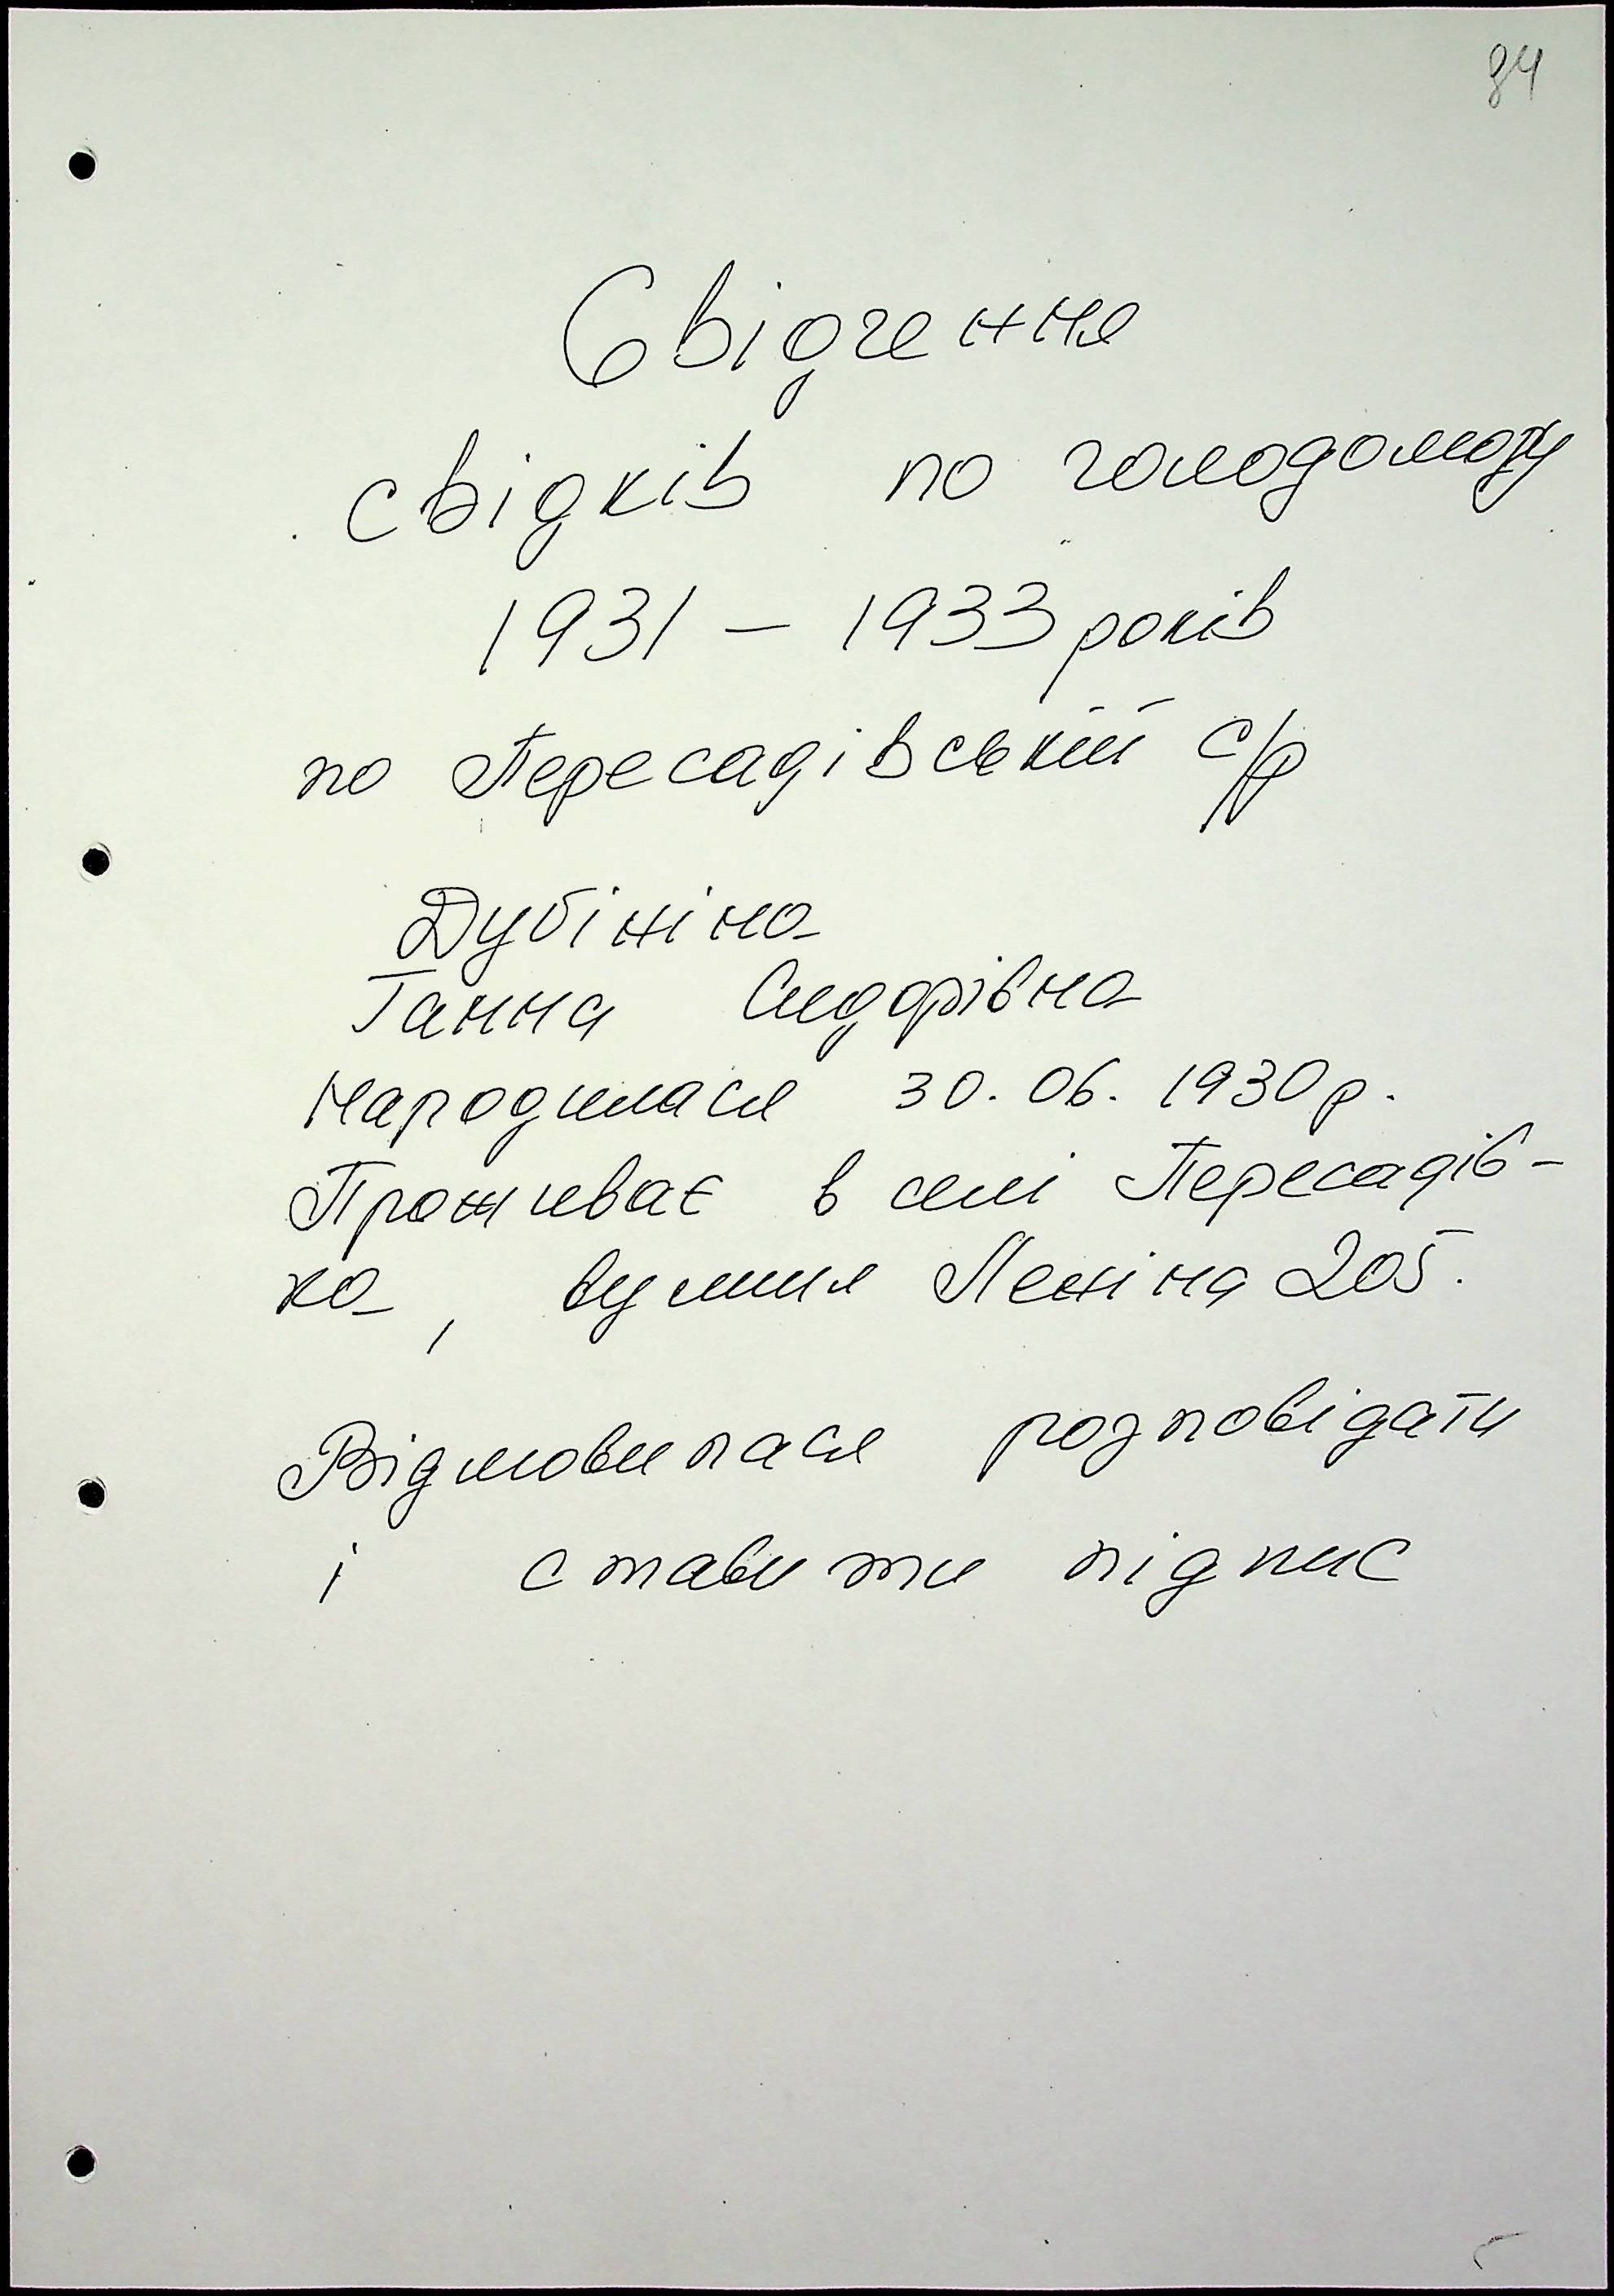 84
Свідчення
свідків по голодомору
1931 – 1933 років
по Пересадівській с/р
Дубініна
Ганна Сидорівна
Народилася 30.06.1930 р.
Проживає в селі Пересадів-
ка, вулиця Леніна 205.
Відмовилася розповідати
і ставити підпис